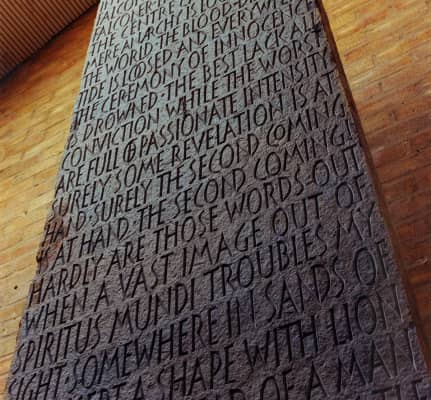 FALCONER
FALL APART THE CENTRE
MERE ANARCHY IS LOOSED
THE WORLD, THE BLOOD-DIMMED
TIDE IS LOOSED, AND EVERYWHERE
THE CEREMONY OF INNOCENCE
IS DROWNED. THE BEST LACK ALL
CONVICTION, WHILE THE WORST
ARE FULL OF PASSIONATE INTENSITY
SURELY SOME REVELATION IS AT
HAND · SURELY THE SECOND COMING
AT HAND · THE SECOND COMING!
HARDLY ARE THOSE WORDS OUT
WHEN A VAST IMAGE OUT OF
SPIRITUS MUNDI TROUBLES MY
SIGHT · SOMEWHERE IN SANDS OF
A SHAPE WITH LION
OF A MAN